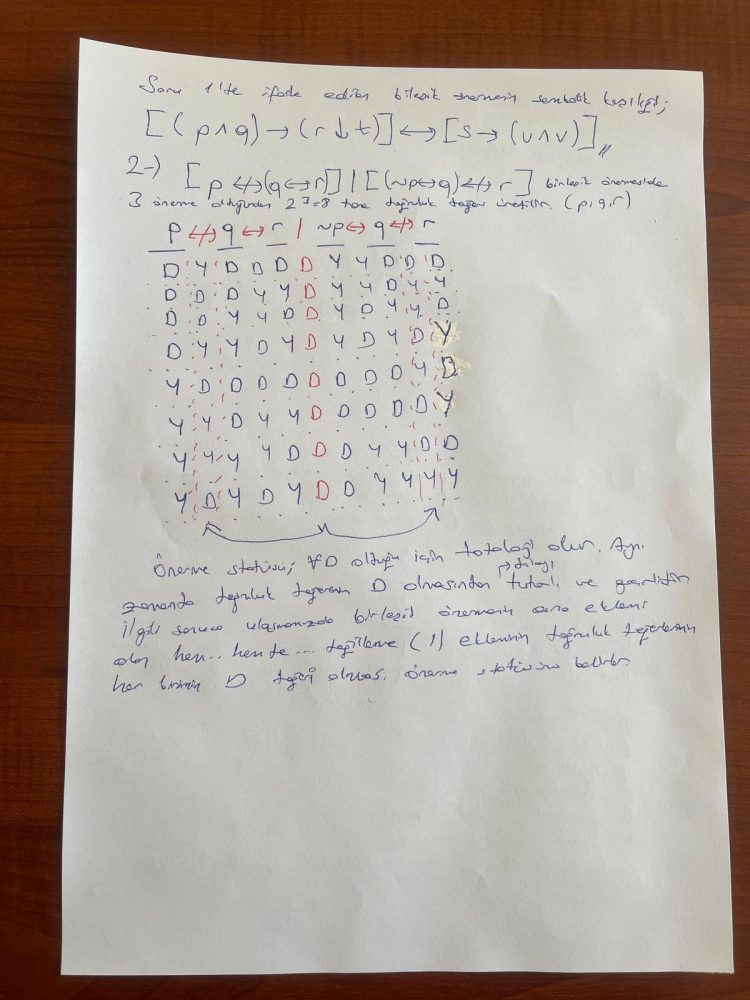 Soru 1'de ifade edilen bileşik önermenin sembolik karşılığı;
[(p∧q)→(r↓t)]↔[s→(u∧v)]
2-) [p ↮(q↔r)] | [(~p↔q)↮ r] birleşik önermesinde
3 önerme olduğundan 2³=8 tane doğruluk değeri üretilir. (p,q,r)
p ↮ q ↔ r | ~p ↔ q ↮ r
D Y D D D D Y Y D D D
D D D Y Y D Y Y D Y Y
D D Y Y D D Y D Y Y D
D Y Y D Y D Y D Y D Y
Y D D D D D D D D Y D
Y Y D Y Y D D D D D Y
Y Y Y Y D D D Y Y D D
Y D Y D Y D D Y Y Y Y
Önerme statüsü; ∀D olduğu için totoloji olur. Aynı
zamanda doğruluk değerinin D olmasından tutarlı ve geçerlidir.
İlgili sonuca ulaşmamızda birleşik önermenin ana eklemi
olan hem.. hem de ... değilleme (|) ekleminin doğruluk değerlerinin
her birinin D değeri olması, önerme statüsünü belirler.